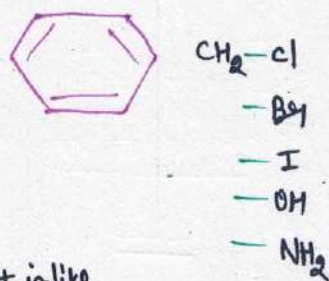 CH₂-Cl
-Br
-I
-OH
-NH₂